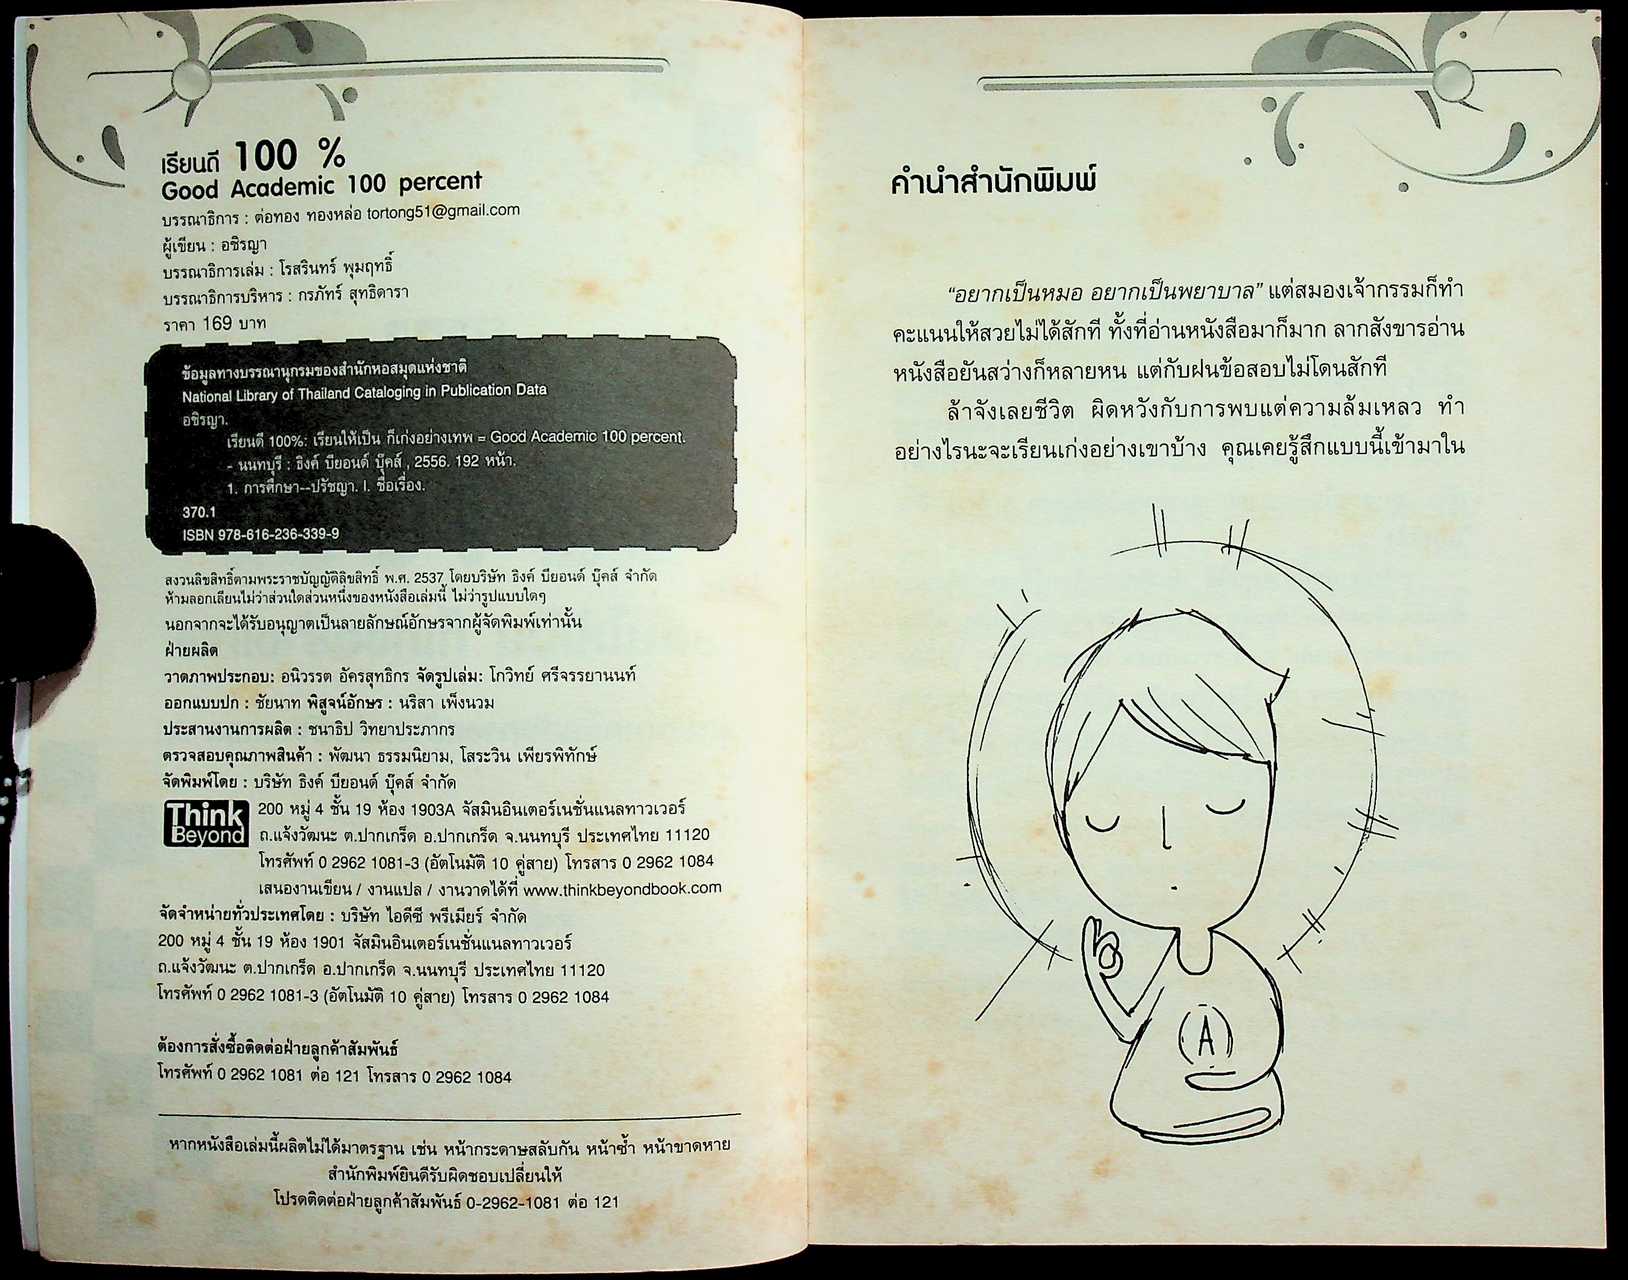 เรียนดี 100 %
Good Academic 100 percent
บรรณาธิการ : ต่อทอง ทองหล่อ tortong51@gmail.com
ผู้เขียน : อชิรญา
บรรณาธิการเล่ม : โรสรินทร์ พุมฤทธิ์
บรรณาธิการบริหาร : กรภัทร์ สุทธิดารา
ราคา 169 บาท
ข้อมูลทางบรรณานุกรมของสำนักหอสมุดแห่งชาติ
National Library of Thailand Cataloging in Publication Data
อชิรญา.
เรียนดี 100%: เรียนให้เป็น ก็เก่งอย่างเทพ = Good Academic 100 percent.
- นนทบุรี : ธิงค์ บียอนด์ บุ๊คส์ , 2556. 192 หน้า.
1. การศึกษา--ปรัชญา. I. ชื่อเรื่อง.
370.1
ISBN 978-616-236-339-9
สงวนลิขสิทธิ์ตามพระราชบัญญัติลิขสิทธิ์ พ.ศ. 2537 โดยบริษัท ธิงค์ บียอนด์ บุ๊คส์ จำกัด
ห้ามลอกเลียนไม่ว่าส่วนใดส่วนหนึ่งของหนังสือเล่มนี้ ไม่ว่ารูปแบบใดๆ
นอกจากจะได้รับอนุญาตเป็นลายลักษณ์อักษรจากผู้จัดพิมพ์เท่านั้น
ฝ่ายผลิต
วาดภาพประกอบ: อนิวรรต อัครสุทธิกร จัดรูปเล่ม: โกวิทย์ ศรีจรรยานนท์
ออกแบบปก : ชัยนาท พิสูจน์อักษร : นริสา เพ็งนวม
ประสานงานการผลิต : ชนาธิป วิทยาประภากร
ตรวจสอบคุณภาพสินค้า : พัฒนา ธรรมนิยาม, โสระวิน เพียรพิทักษ์
จัดพิมพ์โดย : บริษัท ธิงค์ บียอนด์ บุ๊คส์ จำกัด
Think Beyond
200 หมู่ 4 ชั้น 19 ห้อง 1903A จัสมินอินเตอร์เนชั่นแนลทาวเวอร์
ถ.แจ้งวัฒนะ ต.ปากเกร็ด อ.ปากเกร็ด จ.นนทบุรี ประเทศไทย 11120
โทรศัพท์ 0 2962 1081-3 (อัตโนมัติ 10 คู่สาย) โทรสาร 0 2962 1084
เสนองานเขียน / งานแปล / งานวาดได้ที่ www.thinkbeyondbook.com
จัดจำหน่ายทั่วประเทศโดย : บริษัท ไอดีซี พรีเมียร์ จำกัด
200 หมู่ 4 ชั้น 19 ห้อง 1901 จัสมินอินเตอร์เนชั่นแนลทาวเวอร์
ถ.แจ้งวัฒนะ ต.ปากเกร็ด อ.ปากเกร็ด จ.นนทบุรี ประเทศไทย 11120
โทรศัพท์ 0 2962 1081-3 (อัตโนมัติ 10 คู่สาย) โทรสาร 0 2962 1084
ต้องการสั่งซื้อติดต่อฝ่ายลูกค้าสัมพันธ์
โทรศัพท์ 0 2962 1081 ต่อ 121 โทรสาร 0 2962 1084
หากหนังสือเล่มนี้ผลิตไม่ได้มาตรฐาน เช่น หน้ากระดาษสลับกัน หน้าซ้ำ หน้าขาดหาย
สำนักพิมพ์ยินดีรับผิดชอบเปลี่ยนให้
โปรดติดต่อฝ่ายลูกค้าสัมพันธ์ 0-2962-1081 ต่อ 121
คำนำสำนักพิมพ์
“อยากเป็นหมอ อยากเป็นพยาบาล” แต่สมองเจ้ากรรมก็ทำ
คะแนนให้สวยไม่ได้สักที ทั้งที่อ่านหนังสือมาก็มาก ลากสังขารอ่าน
หนังสือยันสว่างก็หลายหน แต่กับฝนข้อสอบไม่โดนสักที
ล้าจังเลยชีวิต ผิดหวังกับการพบแต่ความล้มเหลว ทำ
อย่างไรนะจะเรียนเก่งอย่างเขาบ้าง คุณเคยรู้สึกแบบนี้เข้ามาใน
A